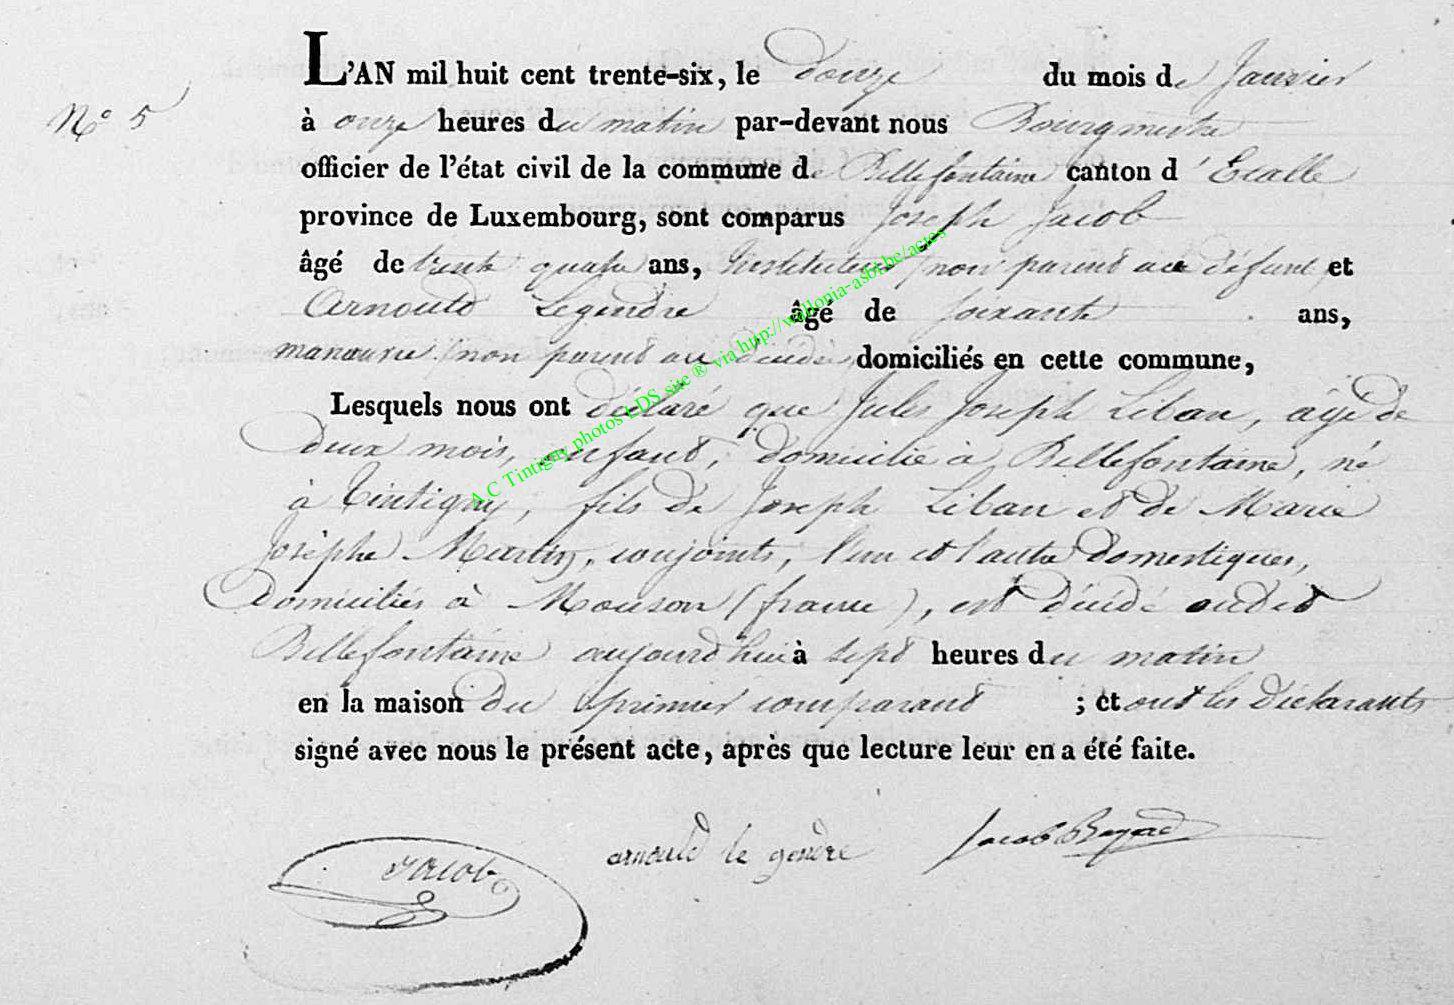 L'AN mil huit cent trente-six, le douze du mois de Janvier
N° 5
à onze heures du matin par-devant nous Bourgmestre
officier de l'état civil de la commune de Bellefontaine canton d'Etalle
province de Luxembourg, sont comparus Joseph Jacob
âgé de trente quatre ans, Instituteur (non parent au défunt) et
Arnould Legendre âgé de soixante ans,
manœuvre (non parent au décédé) domiciliés en cette commune,
Lesquels nous ont déclaré que Jules Joseph Liban, âgé de
deux mois, enfant, domicilié à Bellefontaine, né
à Tintigny, fils de Joseph Liban et de Marie
Josèphe Martin, conjoints, l'un et l'autre domestiques,
domiciliés à Mouson (france), est décédé audit
Bellefontaine aujourd'hui à sept heures du matin
en la maison du premier comparant ; et ont les déclarants
signé avec nous le présent acte, après que lecture leur en a été faite.
Jacob
arnould le gendre
Jacob
A.C Tintigny photos LDS site ® via http://wallonia-asbl.be/actes